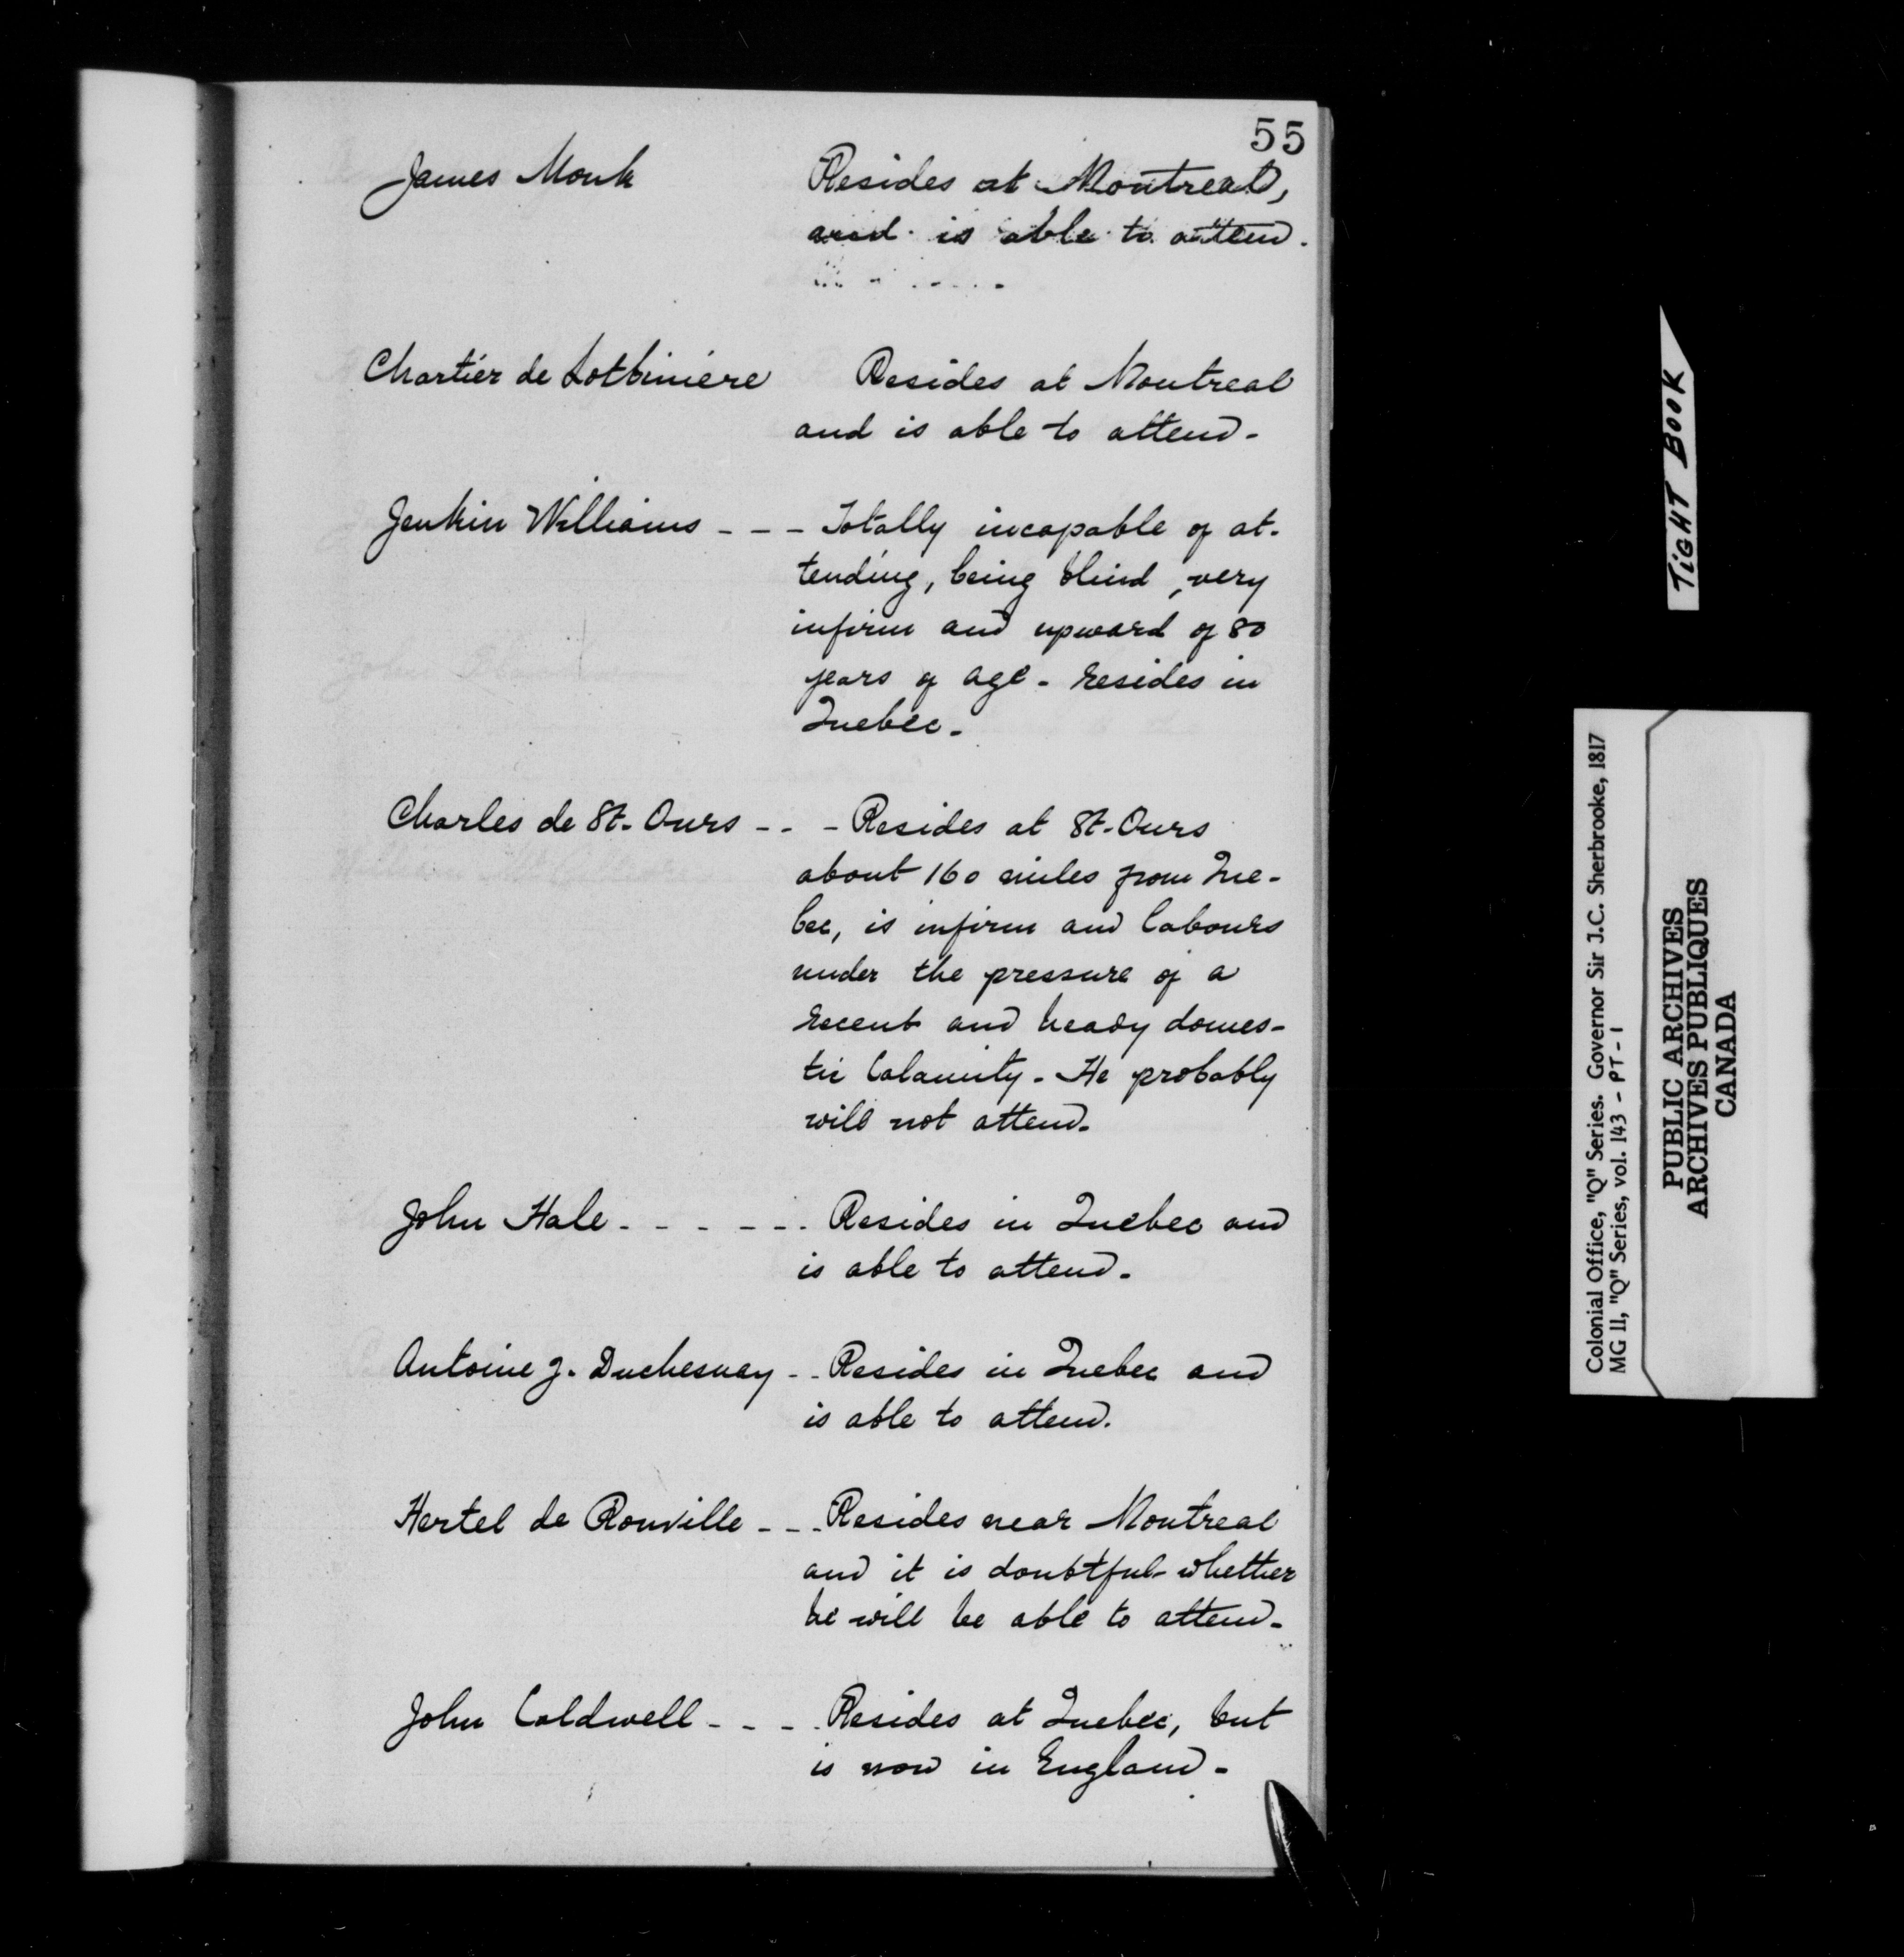 55
James Monk Resides at Montreal,
and is able to attend.
Chartier de Lotbinière Resides at Montreal
and is able to attend-
Jenkin Williams - - - Totally incapable of at-
tending, being blind, very
infirm and upward of 80
years of age - resides in
Quebec-
Charles de St. Ours - - - Resides at St. Ours
about 160 miles from Que-
bec, is infirm and labours
under the pressure of a
recent and heavy domes-
tic Calamity - He probably
will not attend.
John Hale - - - - - - Resides in Quebec and
is able to attend-
Antoine J. Duchesnay - - Resides in Quebec and
is able to attend.
Hertel de Rouville - - - Resides near Montreal
and it is doubtful whether
he will be able to attend-
John Caldwell - - - - Resides at Quebec, but
is now in England-
TiGHT BOOK
Colonial Office, "Q" Series. Governor Sir J.C. Sherbrooke, 1817
MG 11, "Q" Series, vol. 143 - PT-1
PUBLIC ARCHIVES
ARCHIVES PUBLIQUES
CANADA